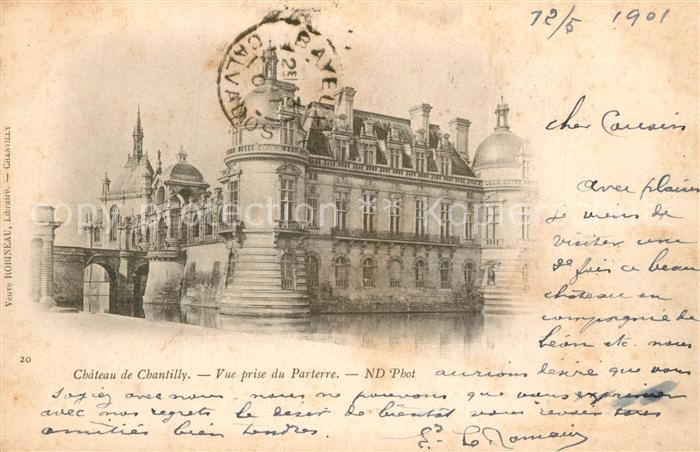 12/5 1901
cher Cousin
avec plaisir
je viens de
visiter une
de fois ce beau
château en
compagnie de
Léon etc. nous
aurions désiré que vous
soyiez avec nous. nous ne pouvons que vous exprimer
avec nos regrets le désir de bientôt vous revoir
amitiés bien tendres.
Ed Le Romain
BAYEUX
CALVADOS
Veuve ROBINEAU, Libraire. — CHANTILLY
20
Château de Chantilly. — Vue prise du Parterre. — ND Phot
copyright